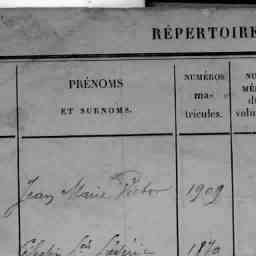 RÉPERTOIRE
PRÉNOMS
ET SURNOMS.
NUMÉROS
ma-
tricules.
NU
MÉ
d
volu
Jean Marie Victor 1909
1870